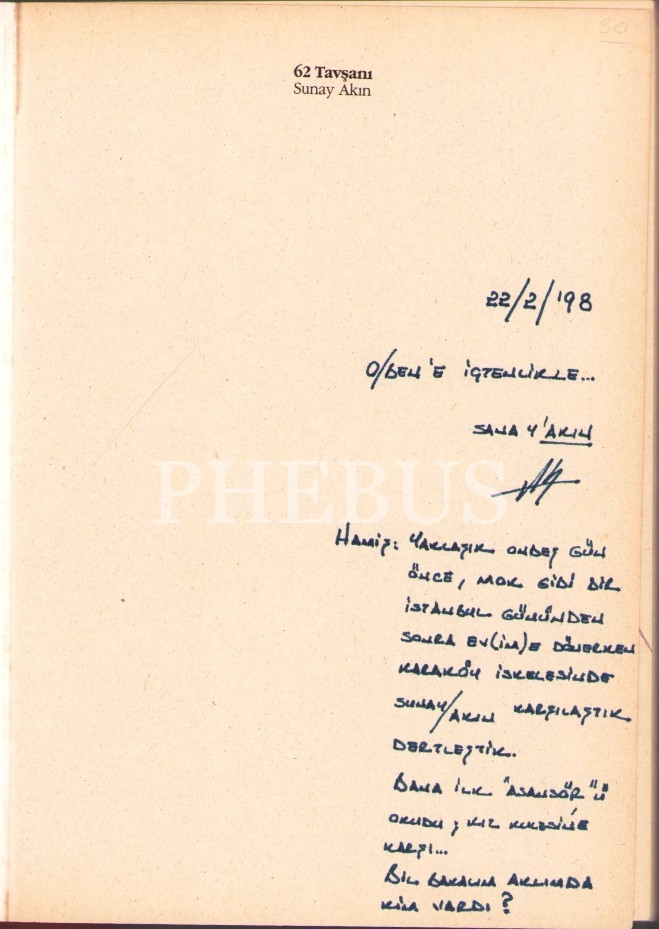 30
62 Tavşanı
Sunay Akın
22/2/'98
O/BEN'E İÇTENLİKLE...
SANA Y'AKIN
PHEBUS
HAMİŞ: YAKLAŞIK ONBEŞ GÜN
ÖNCE, MOR GİBİ BİR
İSTANBUL GÜNÜNDEN
SONRA EV(İM)E DÖNERKEN
KARAKÖY İSKELESİNDE
SUNAY/AKIN KARŞILAŞTIK
DERTLEŞTİK.
BANA İLK "ASANSÖR"Ü
OKUDU; KIZ KULESİNE
KARŞI...
BİL BAKALIM AKLIMDA
KİM VARDI?